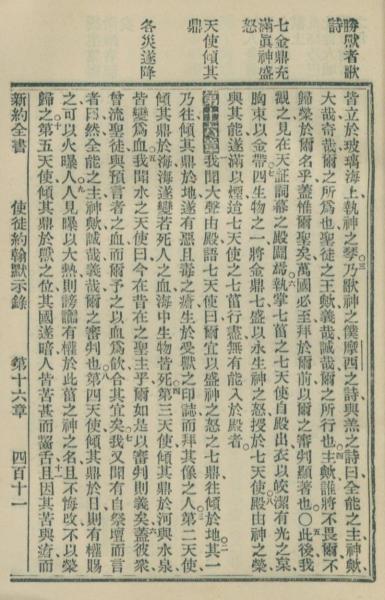 勝獸者歌
詩
七金鼎充
滿眞神盛
怒
天使傾其
鼎
各災遂降
皆立於玻璃海上執神之琴乃歌神之僕摩西之詩與羔之詩曰全能之主神歟
大哉奇哉爾之所爲也聖徒之王歟義哉誠哉爾之所行也主歟誰將不畏爾不
歸榮於爾名乎蓋惟爾聖矣萬國必至拜於爾前以爾之審判顯著也〇此後我
觀之見在天証詞幕之殿闢焉執掌七菑之七天使自殿出衣以皎潔有光之枲
胸束以金帶四生物之一將金鼎七盛以永生神之怒授於七天使殿由神之榮
與其能遂滿以煙迨七天使之七菑行盡無有能入於殿者
第十六章我聞大聲由殿語七天使曰爾宜以盛神之怒之七鼎往傾於地其一
乃往傾其鼎於地遂有惡且毒之瘡生於受獸之印誌而拜其像之人第二天使
傾其鼎於海海遂變若死人之血海中生物皆死第三天使傾其鼎於河與水泉
皆變爲血我聞水之天使曰今在昔在之聖主乎爾如是以審判則義矣蓋彼衆
曾流聖徒與預言者之血而爾予之以血爲飲合其宜矣我又聞有自祭壇而言
者曰然全能之主神歟誠哉義哉爾之審判也第四天使傾其鼎於日則有權賜
之可以火㬥人人見㬥以大熱則謗讟有權於此菑之神之名且不悔改不以榮
歸之第五天使傾其鼎於獸之位其國遂暗人皆苦甚而齧舌且因其苦與瘡而
新約全書 使徒約翰默示錄 第十六章 四百十一